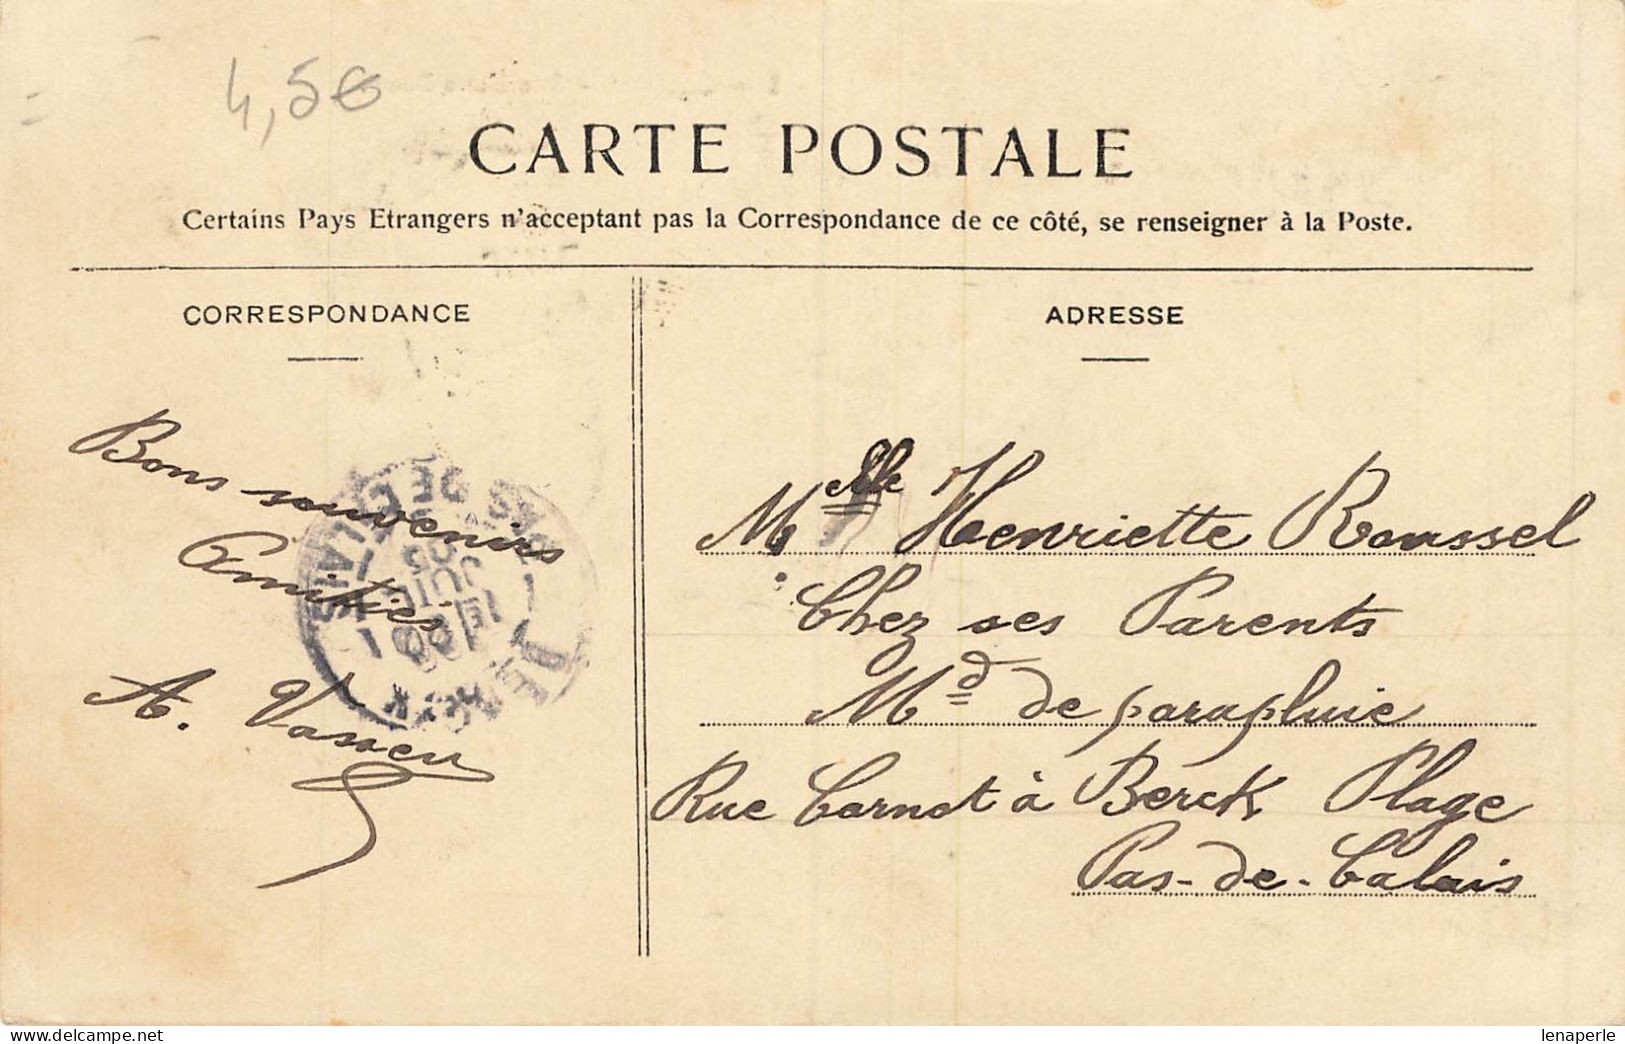 4,5€
CARTE POSTALE
Certains Pays Etrangers n'acceptant pas la Correspondance de ce côté, se renseigner à la Poste.
CORRESPONDANCE
Bons souvenirs
Amitiés
A. Vasseu
PAS DE CALAIS
JUIL
05
BERCK
ADRESSE
Mlle Henriette Roussel
Chez ses Parents
Md de parapluie
Rue Carnot à Berck Plage
Pas-de-Calais
delcampe.net
lenaperle